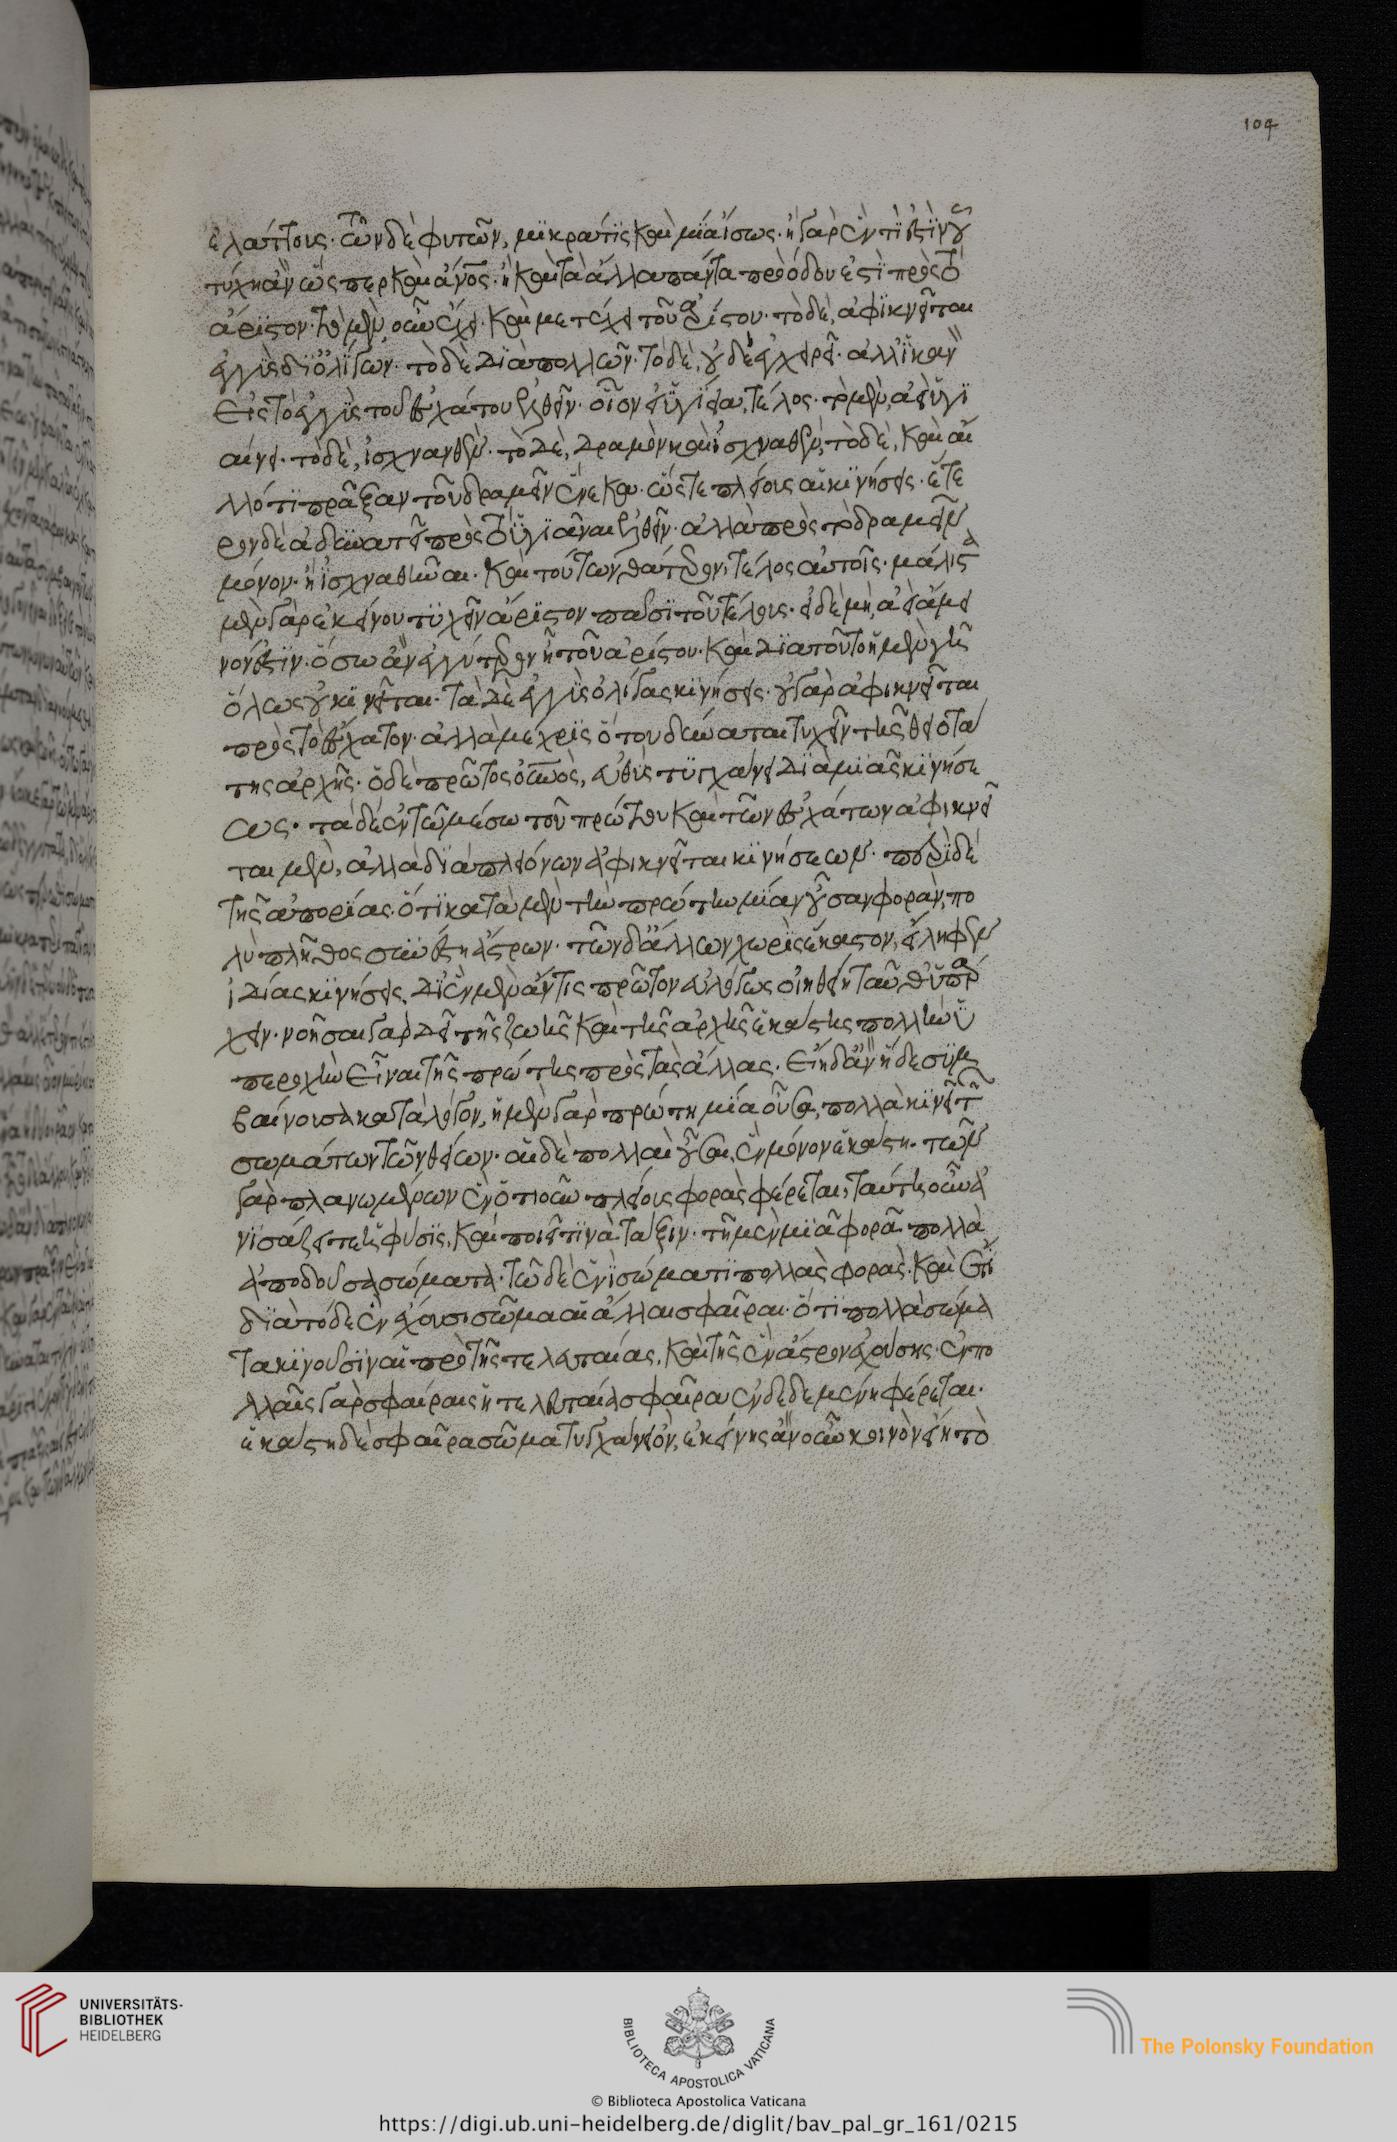 ἐλάττους· τῶν δὲ φυτῶν, μικρά τις καὶ μία ἴσως· ἢ γὰρ ἕν τί ἐστιν οὗ
τύχη ἂν ὥσπερ καὶ ἄνος· ἢ καὶ τὰ ἄλλα πάντα πρὸ ὁδοῦ ἐστὶ πρὸς τὸ
ἄριστον· τὸ μὲν οὖν ἔχει καὶ μετέχει τοῦ ἀρίστου· τὸ δὲ, ἀφικνεῖται
ἐγγὺς δι ὀλίγων· τὸ δὲ διὰ πολλῶν· τὸ δὲ, οὐδ ἐγχειρεῖ· ἀλλ ἱκανὸν
εἰς τὸ ἐγγὺς τοῦ ἐσχάτου ἐλθεῖν· οἷον εἰ ὑγίεια, τέλος· τὸ μὲν, ἀεὶ ὑγι
αίνει· τὸ δὲ, ἰσχνανθὲν· τὸ δὲ, δραμὸν καὶ ἰσχνανθὲν, τὸ δὲ, καὶ ἄ
λλό τι πρᾶξαν τοῦ δραμεῖν ἕνεκα· ὥστε πλείους αἱ κινήσεις· ἕτε
ρον δὲ ἀδυνατεῖ πρὸς τὸ ὑγιᾶναι ἐλθεῖν· ἀλλὰ πρὸς τὸ δραμεῖν
μόνον· ἢ ἰσχναθῆναι· καὶ τούτων θάτερον, τέλος αὐτοῖς· μάλιστα
μὲν γὰρ ἐκείνου τυχεῖν ἄριστον πᾶσι τοῦ τέλους· εἰ δὲ μὴ, ἀεὶ ἄμει
νόν ἐστιν· ὅσω ἂν ἐγγύτερον ἦ τοῦ ἀρίστου· καὶ διὰ τοῦτο ἡ μὲν γῆ
ὅλως οὐ κινεῖται· τὰ δὲ ἐγγὺς ὀλίγας κινήσεις· οὐ γὰρ ἀφικνεῖται
πρὸς τὸ ἔσχατον· ἀλλὰ μέχρις ὅτου δύναται τυχεῖν τῆς θειοτά
της ἀρχῆς· ὁ δὲ πρῶτος οὐνὸς, εὐθὺς τυγχάνει διὰ μιᾶς κινήσε
ως· τὰ δὲ ἐν τῶ μέσω τοῦ πρώτου καὶ τῶν ἐσχάτων ἀφικνεῖ
ται μὲν, ἀλλὰ διὰ πλειόνων ἀφικνεῖται κινήσεων· περὶ δὲ
τῆς ἀπορίας· ὅτι κατὰ μὲν τὴν πρώτην μίαν οὖσαν φορὰν, πο
λὺ πλῆθος συνέστη ἄστρων· τῶν δ ἄλλων χωρὶς ἕκαστον, εἴληφεν
ἰδίας κινήσεις, δι ἓν μὲν ἄν τις πρῶτον εὐλόγως οἰηθείη ταῦθ ὑπάρ
χειν· νοῆσαι γὰρ δεῖ τῆς ζωῆς καὶ τῆς ἀρχῆς ἑκάστης πολλὴν ὑ
περοχὴν εἶναι τῆς πρώτης πρὸς τὰς ἄλλας. εἴη δ ἂν ἥδε συμ
βαίνουσα κατὰ λόγον, ἡ μὲν γὰρ πρώτη μία οὖσα, πολλὰ κινεῖ τῶν
σωμάτων τῶν θείων· αἱ δὲ πολλαὶ οὖσαι, ἓν μόνον ἑκάστη· τῶν
γὰρ πλανωμένων ἓν ὁτιοῦν πλείους φορὰς φέρεται, ταύτη οὖν ἀ
νισάζει τε ἡ φύσις, καὶ ποιεῖ τινὰ τάξιν· τῆ μὲν μιᾶ φορᾶ πολλὰ
ἀποδοῦσα σώματα· τῶ δὲ ἑνὶ σώματι πολλὰς φορὰς· καὶ ἔτι
διὰ τόδε ἓν ἔχουσι σῶμα αἱ ἄλλαι σφαῖραι· ὅτι πολλὰ σώμα
τα κινοῦσιν αἱ πρὸ τῆς τελευταίας, καὶ τῆς ἓν ἄστρον ἐχούσης· ἐν πο
λλαῖς γὰρ σφαίραις ἡ τελευταία σφαῖρα ἐνδεδεμένη φέρεται·
ἑκάστη δὲ σφαῖρα σῶμα τυγχάνει ὄν, ἐκείνης ἂν οὖν κοινὸν εἴη τὸ
104
UNIVERSITÄTS-
BIBLIOTHEK
HEIDELBERG
BIBLIOTECA APOSTOLICA VATICANA
The Polonsky Foundation
© Biblioteca Apostolica Vaticana
https://digi.ub.uni-heidelberg.de/diglit/bav_pal_gr_161/0215